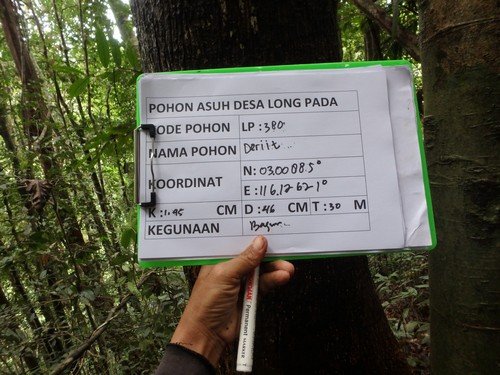 POHON ASUH DESA LONG PADA
KODE POHON LP : 380
NAMA POHON Deriit ..
KOORDINAT N : 03.00885°
E : 116.12621°
K : 1.45 CM D : 46 CM T : 30 M
KEGUNAAN
Permanent MARKER